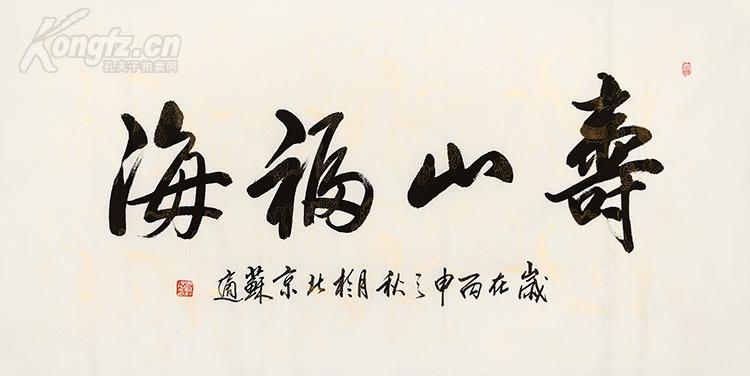 壽山福海
歲在丙申之秋月於北京蘇適
Kongfz.cn
孔夫子拍卖网